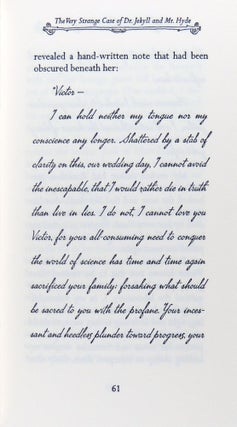 The Very Strange Case of Dr. Jekyll and Mr. Hyde
revealed a hand-written note that had been
obscured beneath her:
"Victor —
I can hold neither my tongue nor my
conscience any longer. Shattered by a stab of
clarity on this, our wedding day, I cannot avoid
the inescapable, that I would rather die in truth
than live in lies. I do not, I cannot love you
Victor, for your all-consuming need to conquer
the world of science has time and time again
sacrificed your family: forsaking what should
be sacred to you with the profane. Your inces-
sant and heedless plunder toward progress, your
61